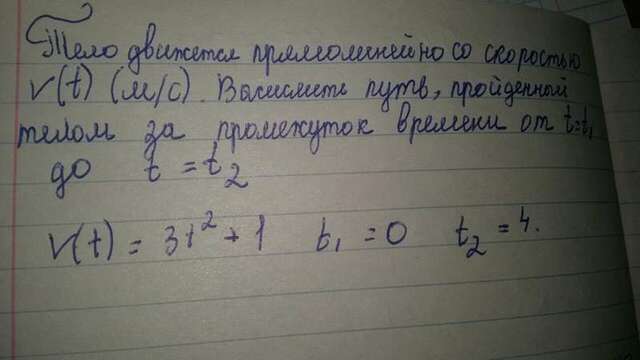 Тело движется прямолинейно со скоростью
v(t) (м/с). Вычислить путь, пройденной
телом за промежуток времени от t=t₁
до t = t₂
v(t) = 3t² + 1 t₁ = 0 t₂ = 4.